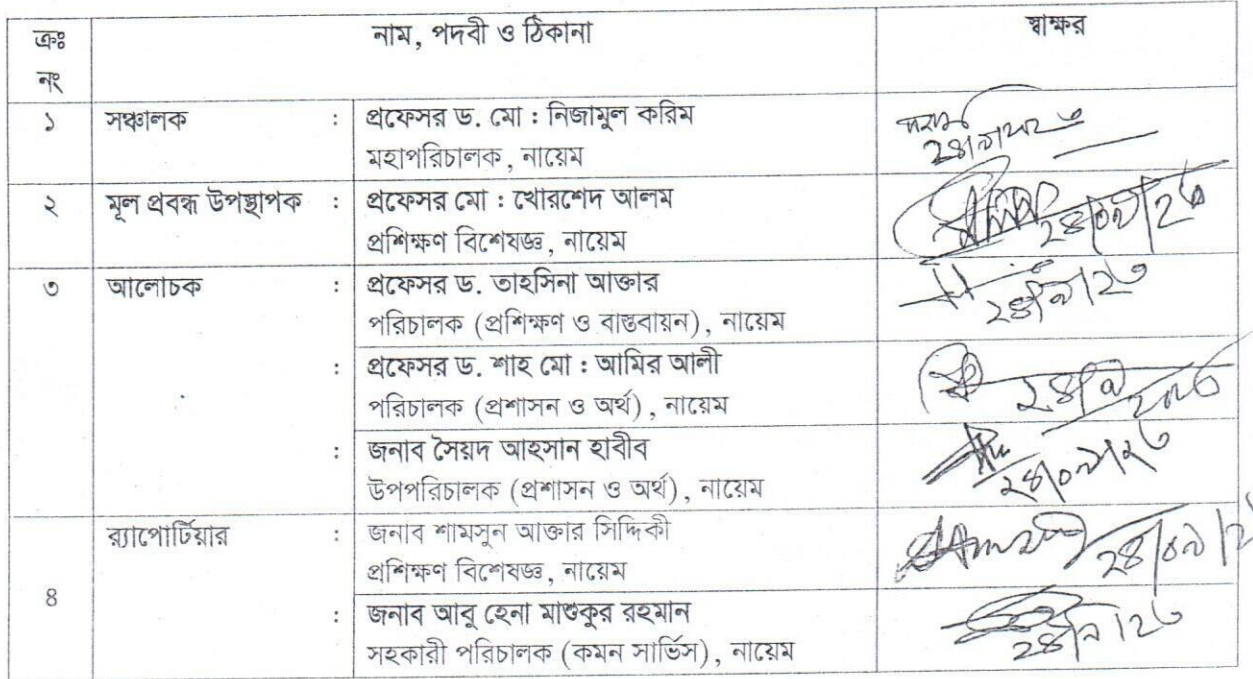 ক্রঃ নং নাম, পদবী ও ঠিকানা স্বাক্ষর
১ সঞ্চালক : প্রফেসর ড. মো : নিজামুল করিম
মহাপরিচালক, নায়েম
২ মূল প্রবন্ধ উপস্থাপক : প্রফেসর মো : খোরশেদ আলম
প্রশিক্ষণ বিশেষজ্ঞ, নায়েম
২৪/০৯/২৩
৩ আলোচক : প্রফেসর ড. তাহসিনা আক্তার
পরিচালক (প্রশিক্ষণ ও বাস্তবায়ন), নায়েম
২৪/৯/২৩
: প্রফেসর ড. শাহ মো : আমির আলী
পরিচালক (প্রশাসন ও অর্থ), নায়েম
: জনাব সৈয়দ আহসান হাবীব
উপপরিচালক (প্রশাসন ও অর্থ), নায়েম
২৪/০৯/২৩
৪ র‍্যাপোর্টিয়ার : জনাব শামসুন আক্তার সিদ্দিকী
প্রশিক্ষণ বিশেষজ্ঞ, নায়েম
: জনাব আবু হেনা মাশুকুর রহমান
সহকারী পরিচালক (কমন সার্ভিস), নায়েম
২৪/৯/২৩